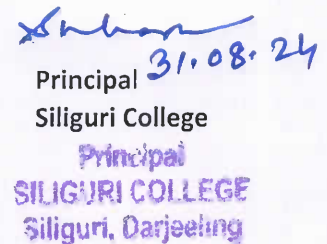 31.08.24
Principal
Siliguri College
Principal
SILIGURI COLLEGE
Siliguri, Darjeeling